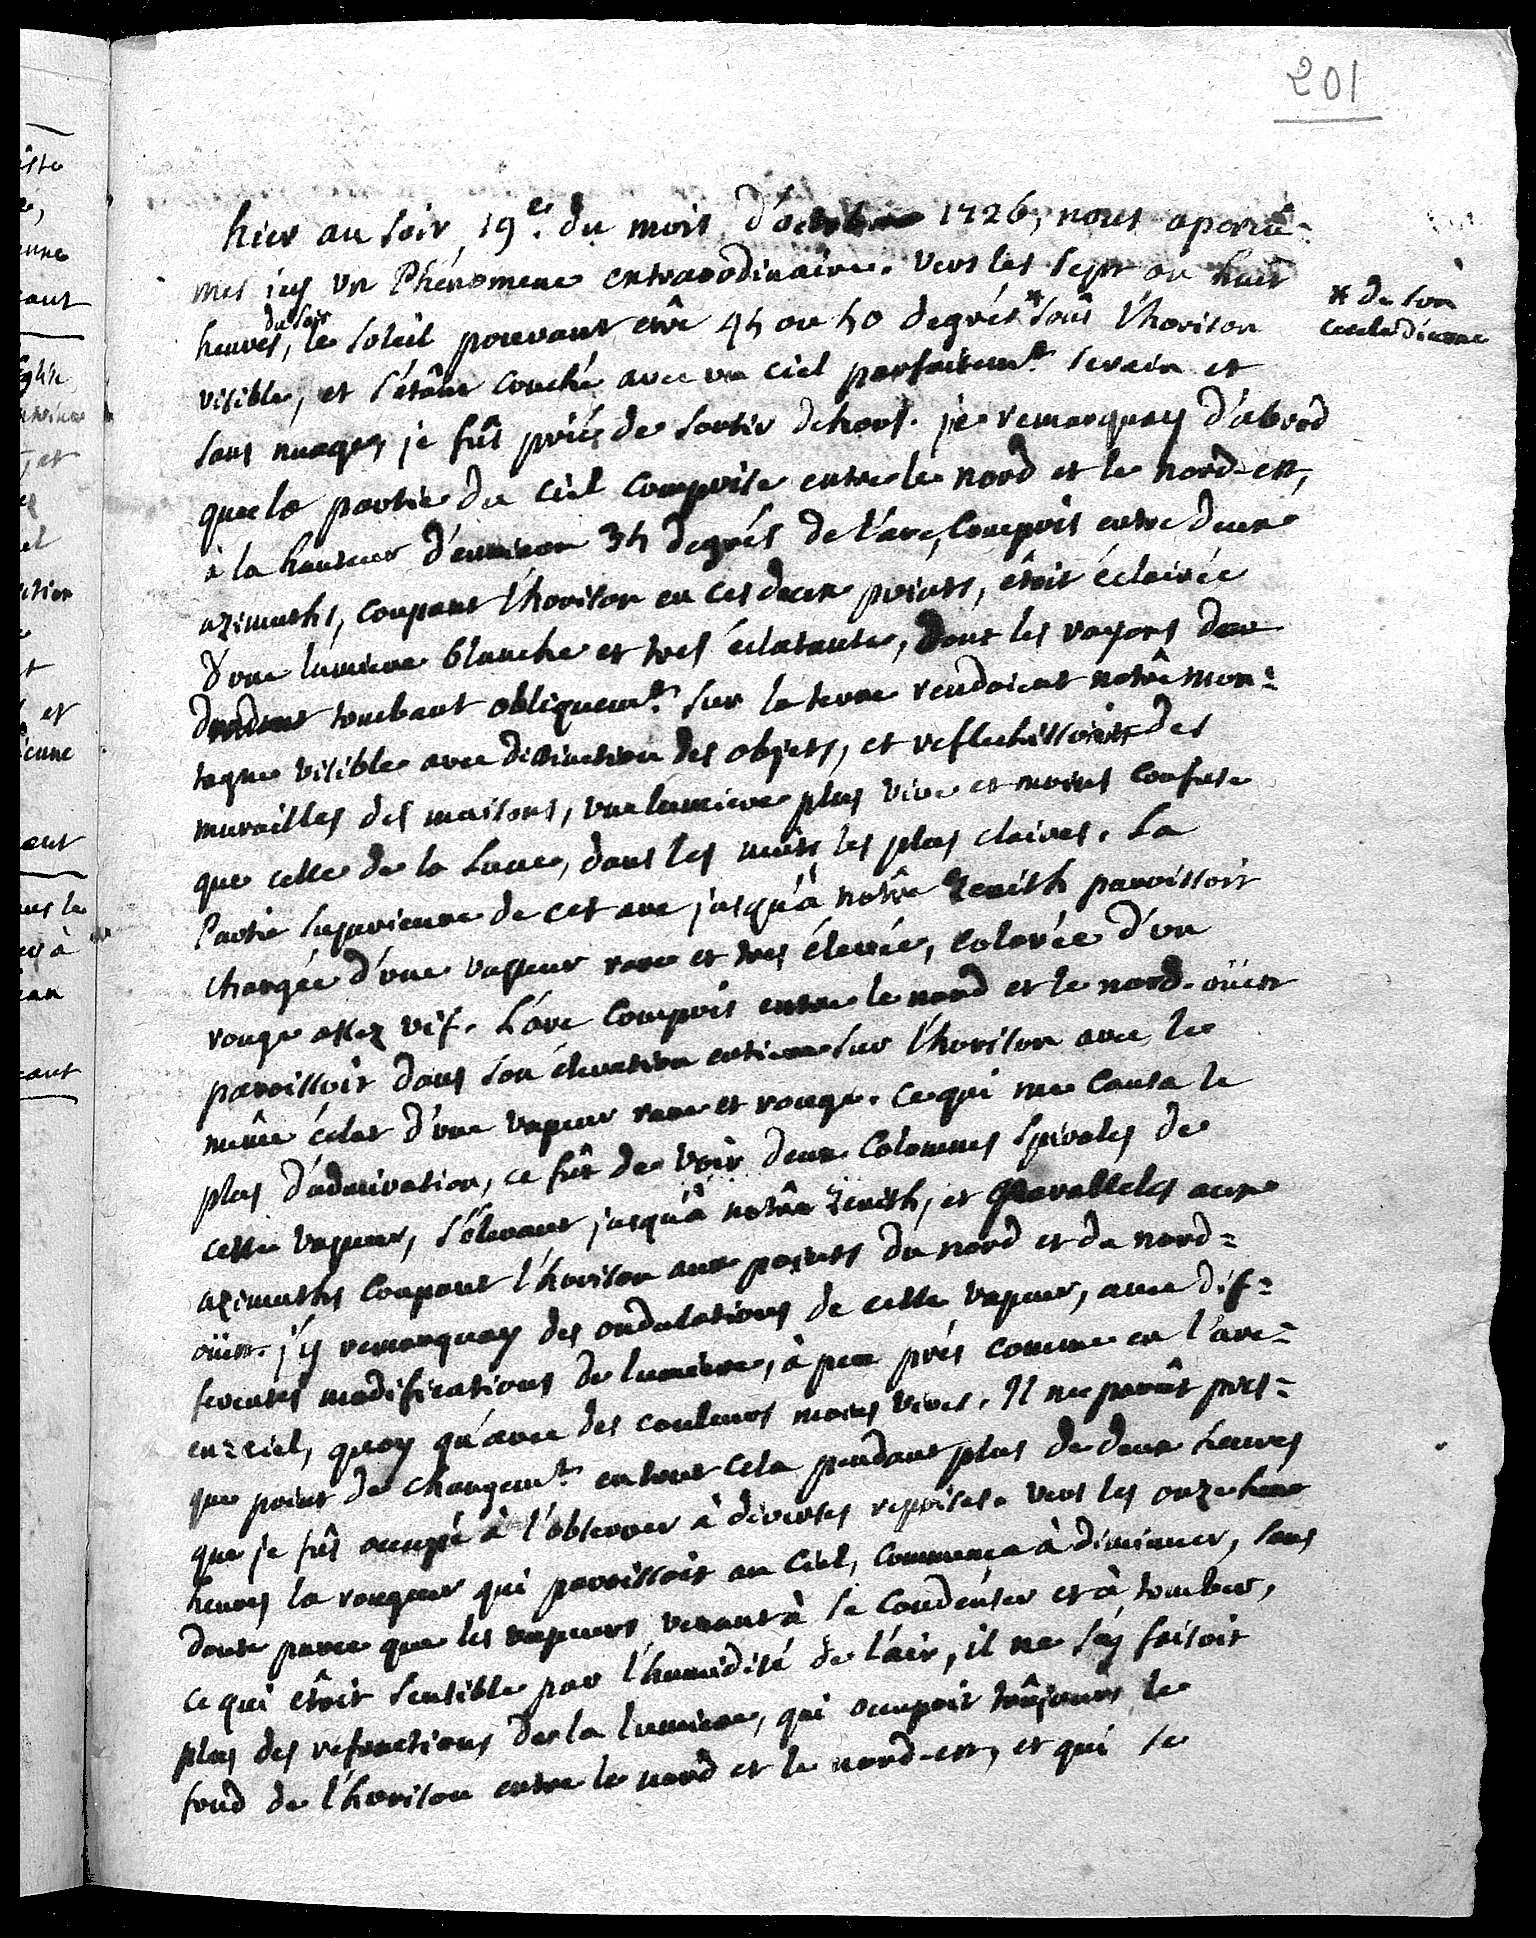 201
hier au soir 19e. du mois d'octobre 1726, nous aperçû=
mes icy un Phénomene extraordinaire. vers les sept ou huit
heures, du soir le soleil pouvant être 45 ou 50 degrés * sous l'horison
* de son
cercle diurne
visible, et s'étant couché avec un ciel parfaitemt. serain et
sans nuages, je fûs priés de sortir dehors. je remarquay d'abord
que la partie du ciel comprise entre le nord et le nord-est,
à la hauteur d'environ 35 degrés de l'arc, compris entre deux
azimuths, coupant l'horison en ces deux points, étoit éclairée
d'une lumiere blanche et tres éclatante, dont les rayons
tombant obliquemt. sur la terre rendoient notre mon=
tagne visible avec distinction des objets, et reflechissoient des
murailles des maisons, une lumiere plus vive et moins confuse
que celle de la Lune, dans les nuits les plus claires. La
Partie superieure de cet arc jusqu'à notre Zenith paroissoit
chargée d'une vapeur rare et tres élevée, colorée d'un
rouge assez vif. L'arc compris entre le nord et le nord-oüest
paroissoit dans son élevation entiere sur l'horison avec le
même éclat d'une vapeur rare et rouge. ce qui me causa le
plus d'admiration, ce fût de voir deux Colomnes spirales de
cette vapeur, s'élevant jusqu'à notre zenith, et Paralleles aux
azimuths coupant l'horison aux points du nord et du nord=
oüest. j'y remarquay des ondulations de cette vapeur, avec dif=
ferentes modifications de lumiere, à peu près comme en l'arc=
en=ciel, quoy qu'avec des couleurs moins vives. Il ne parût pres=
que point de changemt. en tout cela pendant plus de deux heures
que je fûs occupé à l'observer à diverses reprises. vers les onze
heures la rougeur qui paroissoit au Ciel, commença à diminuer, sans
doute parce que les vapeurs venant à se condenser et à tomber,
ce qui étoit sensible par l'humidité de l'air, il ne s'y faisoit
plus des refractions de la lumiere, qui occupoit toûjours le
fond de l'horison entre le nord et le nord-est, et qui se